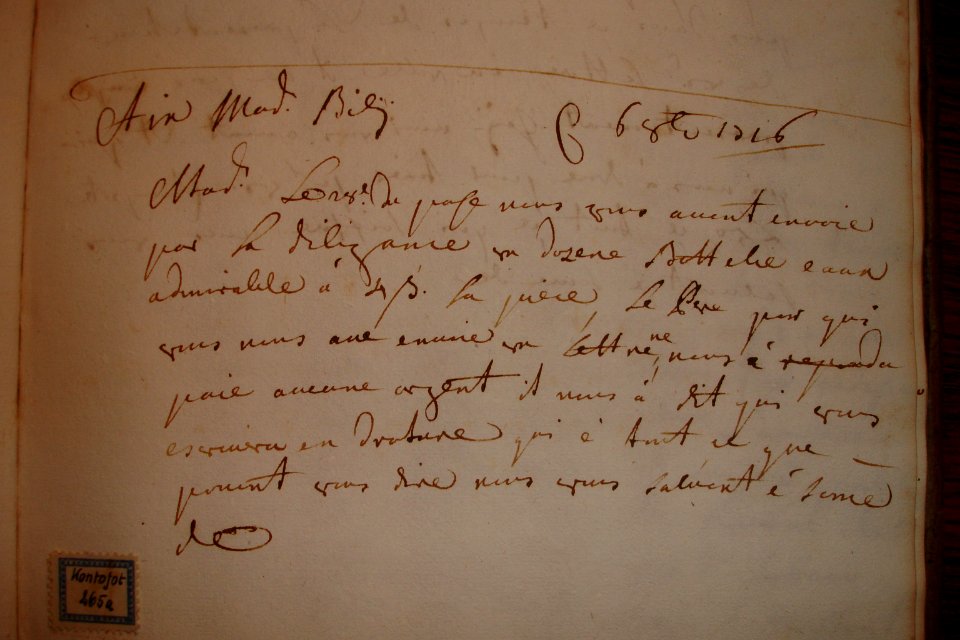 A in Mad. Bilj
C 6 8br 1716
Mad. Le du pase nous vous avont envoie
par la diligance un dozene Bottelie eaux
admirable à 4 ß. la pièce, Le Pere par qui
vous nous ave envoie un lettre, ne nous à repondu
paie aucune argent it nous à dit qui vous
escrivera en drature qui è tout ce que
pouvont vous dire nous vous saluont è some
de
Kontofot
465a